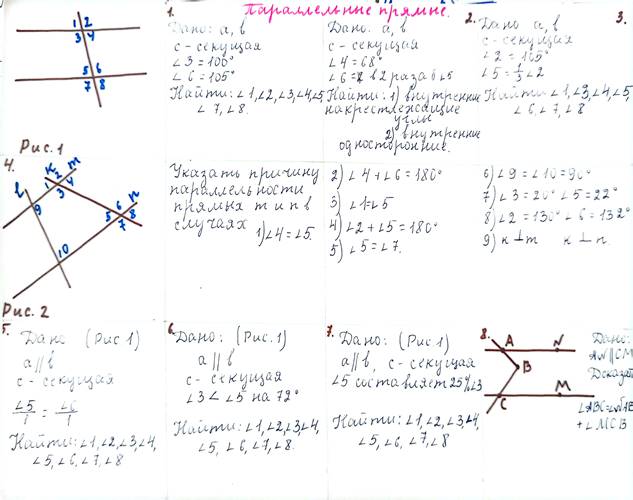 Параллельные прямые.
1 2
3 4
5 6
7 8
Рис. 1
1.
Дано: a, b
c - секущая
∠3 = 100°
∠6 = 105°
Найти: ∠1, ∠2, ∠3, ∠4, ∠5,
∠7, ∠8.
Дано: a, b
c - секущая
∠4 = 68°
∠6 = в 2 раза б ∠5
Найти: 1) внутренние
накрестлежащие
углы
2) внутренние
односторонние.
2.
Дано a, b
c - секущая
∠2 = 165°
Найти: ∠1, ∠3, ∠4, ∠5,
∠6, ∠7, ∠8
3.
4.
l
к
m
n
1 2 4
3
9
5 6 8
7
10
Рис. 2
Указать причину
параллельности
прямых m и n в
случаях
1) ∠4 = ∠5.
2) ∠4 + ∠6 = 180°
3) ∠1 = ∠5
4) ∠2 + ∠5 = 180°
5) ∠5 = ∠7.
6) ∠9 = ∠10 = 90°
7) ∠3 = 20° ∠5 = 22°
8) ∠2 = 130° ∠6 = 132°
9) к ⊥ m к ⊥ n.
5.
Дано (Рис 1)
a || b
c - секущая
∠5/1 = ∠6/1
Найти: ∠1, ∠2, ∠3, ∠4,
∠5, ∠6, ∠7, ∠8
6.
Дано: (Рис. 1)
a || b
c - секущая
∠3 < ∠5 на 72°
Найти: ∠1, ∠2, ∠3, ∠4,
∠5, ∠6, ∠7, ∠8.
7.
Дано: (Рис. 1)
a || b, c - секущая
∠5 составляет 25% ∠3
Найти: ∠1, ∠2, ∠3, ∠4,
∠5, ∠6, ∠7, ∠8
8.
A
N
B
C
M
Дано:
AN || CM
Доказать
+ ∠MCB